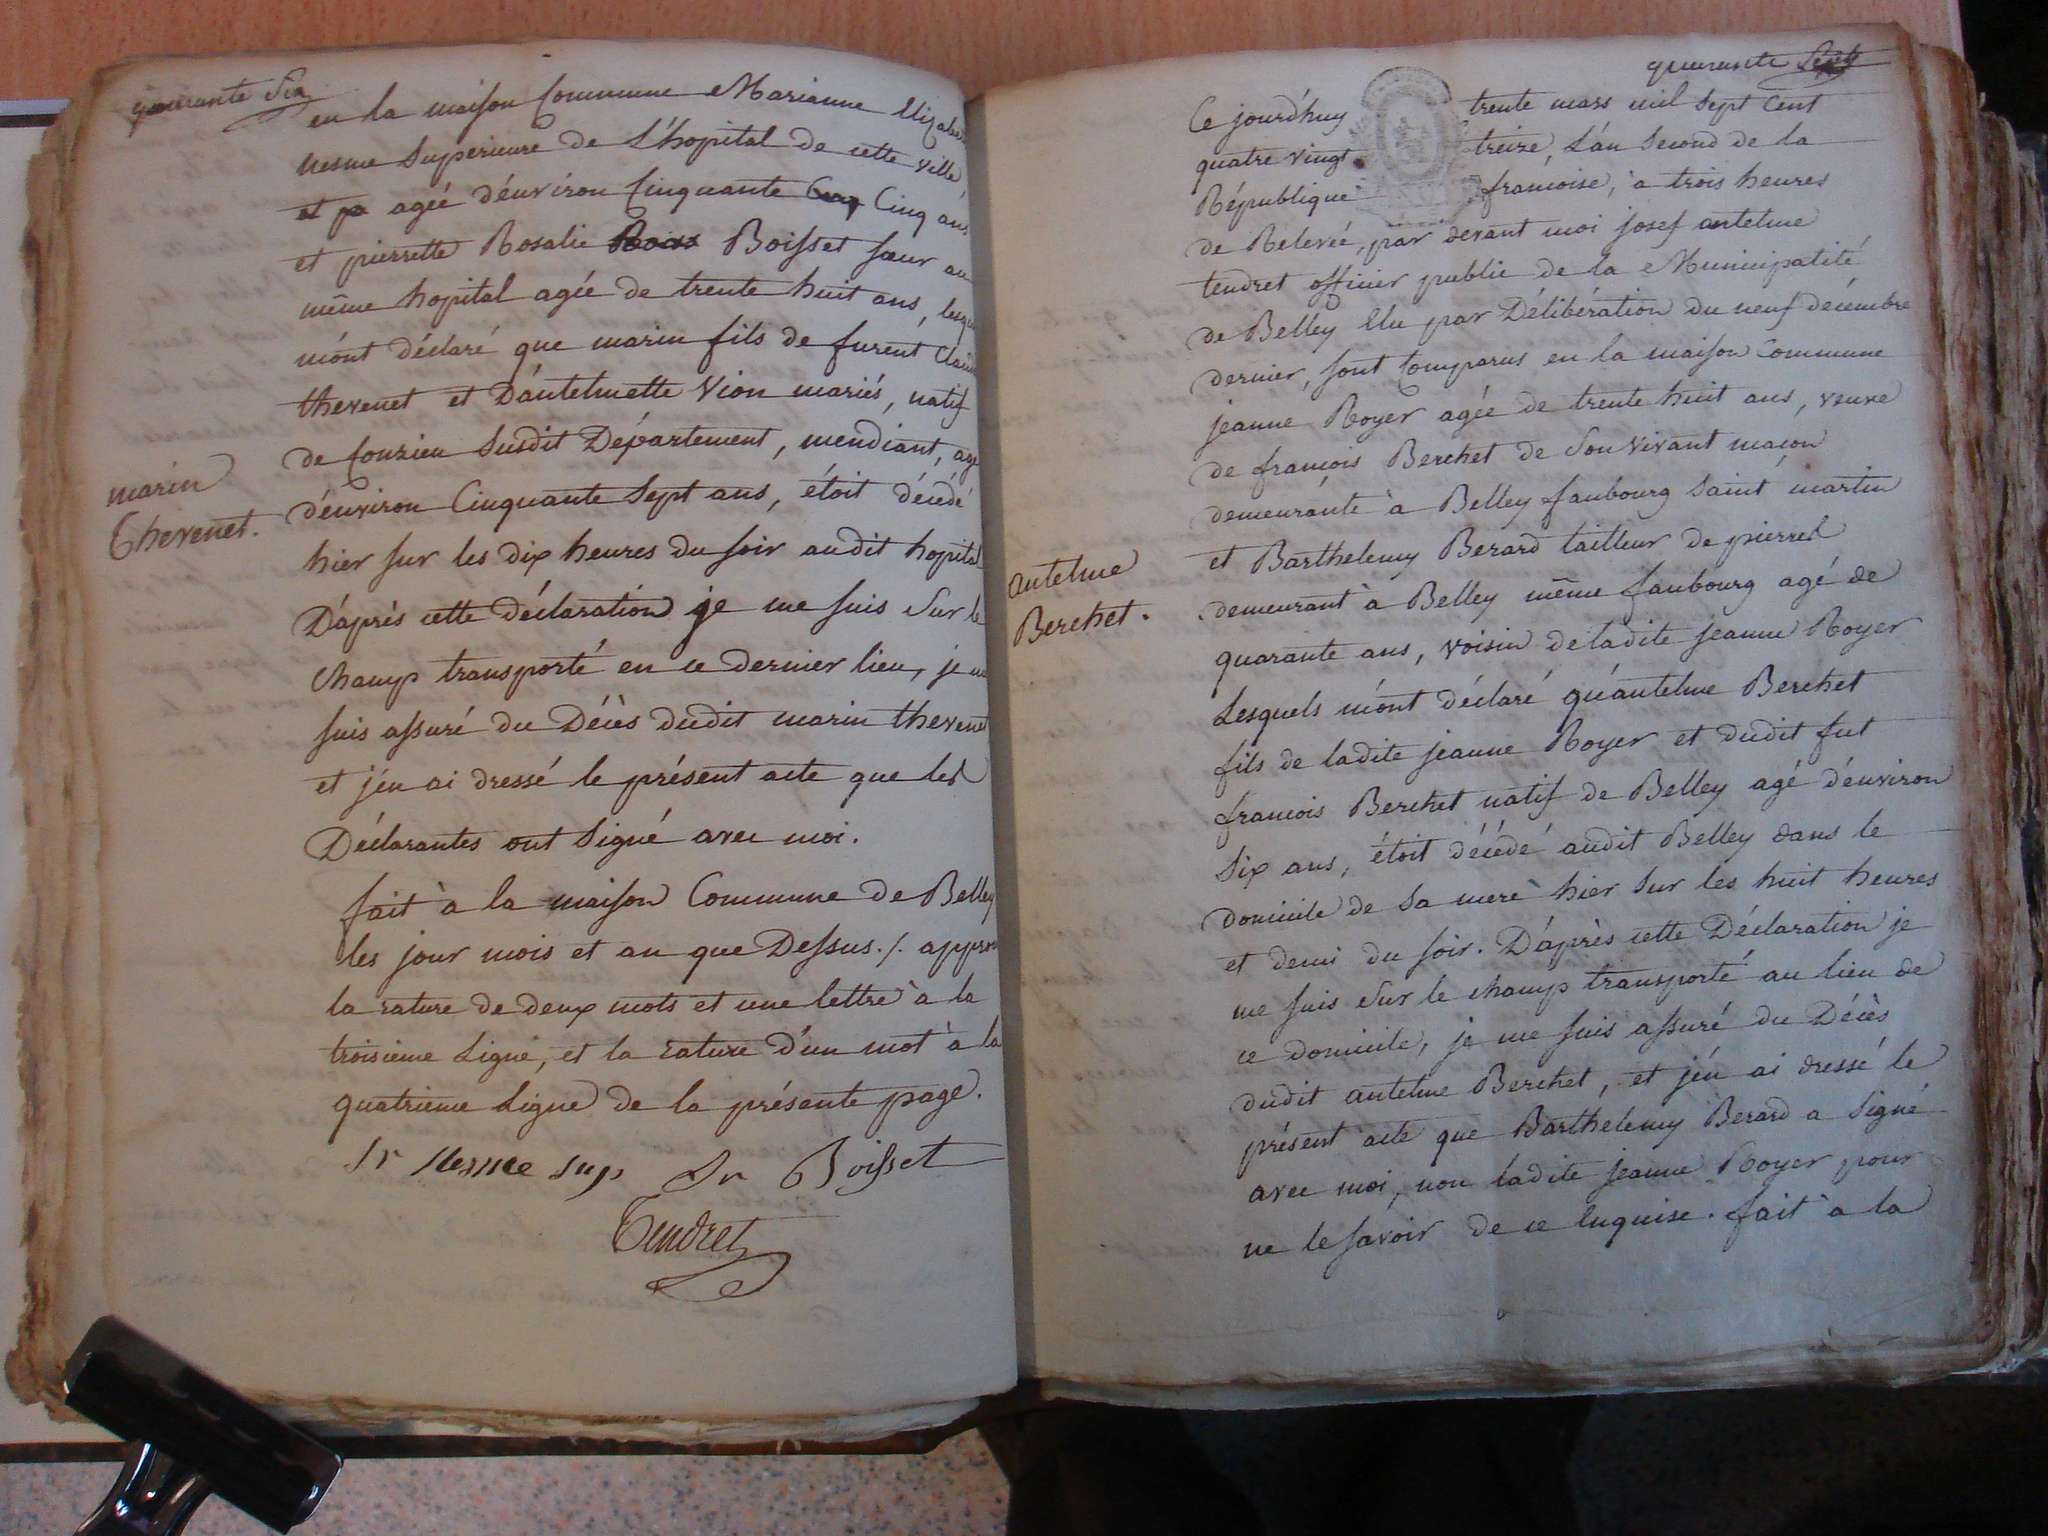 quarante Six
en la maison Commune Marianne Elizabeth
nesme Superieure de L'hopital de cette ville,
et agée d'environ Cinquante Cinq ans
et pierrette Rosalie Boisset sœur au
même hopital agée de trente huit ans,
m'ont déclaré que marin fils de furent
thevenet et D'antelmette Vion mariés, natif
de Conzieu Susdit Département, mendiant, agé
marin
Thevenet.
d'environ Cinquante Sept ans, étoit décedé
hier sur les dix heures du soir audit hopital
D'après cette déclaration je me suis Sur le
champ transporté en ce dernier lieu, je me
suis assuré du Décès dudit marin thevenet
et j'en ai dressé le présent acte que les
Déclarantes ont Signé avec moi.
fait à la maison Commune de Belley
les jour mois et an que Dessus ./. approu
la rature de deux mots et une lettre à la
troisième Ligne, et la rature D'un mot à la
quatrieme Ligne de la présente page.
Sr Nesme Sup Sr Boisset
Tendret
quarante Sept
Ce jourd'huy trente mars mil Sept Cent
quatre vingt treize, L'an Second de la
République francoise, à trois heures
de Relevée, par devant moi josef antelme
tendret officier public de la Municipalité
de Belley Elu par Délibération du neuf décembre
dernier, sont Comparus en la maison Commune
jeanne Royer agée de trente huit ans, veuve
de francois Berchet de Son vivant macon
demeurante à Belley faubourg Saint martin
et Barthelemy Berard tailleur de pierres
antelme
Berchet.
demeurant à Belley même faubourg agé de
quarante ans, voisin de ladite jeanne Royer
Lesquels m'ont déclaré qu'antelme Berchet
fils de ladite jeanne Royer et dudit fut
francois Berchet natif de Belley agé d'environ
Six ans, étoit décédé audit Belley dans le
domicile de Sa mere hier Sur les huit heures
et demi du soir. D'après cette Déclaration je
me suis Sur le champ transporté au lieu de
ce domicile, je me suis assuré du Décès
dudit antelme Berchet, et j'en ai dressé le
présent acte que Barthélemy Berard a Signé
avec moi, non ladite jeanne Royer pour
ne le savoir de ce Enquise. fait à la